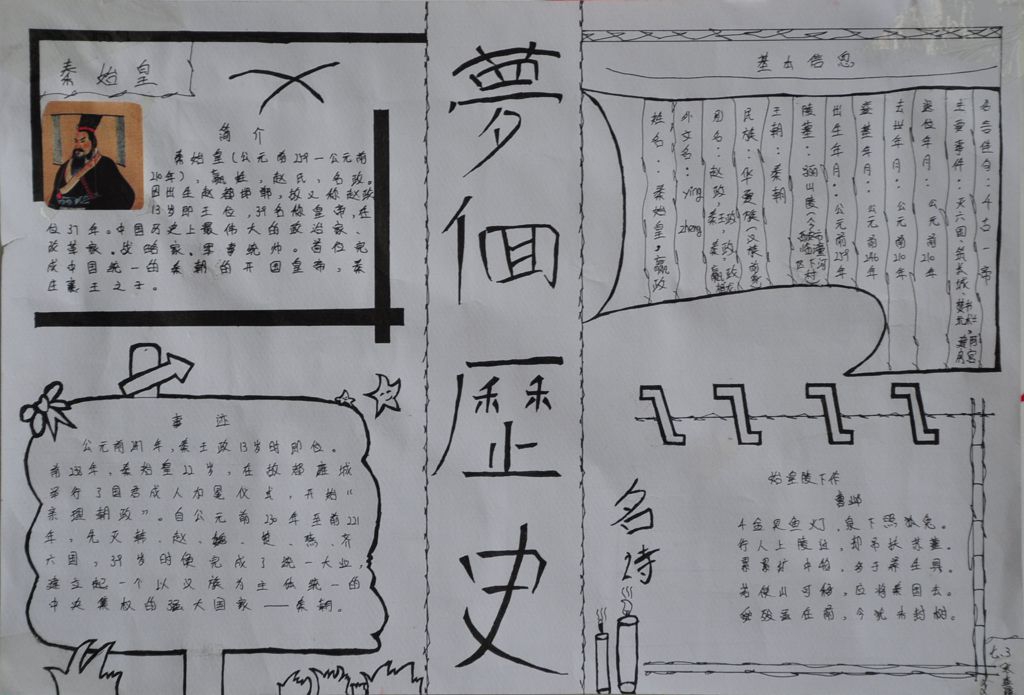 秦始皇
简介
秦始皇(公元前259—公元前
210年),嬴姓,赵氏,名政。
因出生赵都邯郸,故又称赵政
13岁即王位,39岁称皇帝,在
位37年。中国历史上最伟大的政治家、
改革家、战略家、军事统帅。首位完
成中国统一的秦朝的开国皇帝,秦
庄襄王之子。
事迹
公元前247年,秦王政13岁时即位。
前238年,秦始皇22岁,在故都雍城
举行了国君成人加冕仪式,开始“
亲理朝政”。自公元前230年至前221
年,先灭韩、赵、魏、楚、燕、齐
六国,39岁时便完成了统一大业,
建立起一个以汉族为主体统一的
中央集权的强大国家——秦朝。
夢徊歷史
基本信息
姓名:秦始皇,嬴政
外文名:ying zheng
国名:赵政,秦王政,秦政
民族:华夏族(汉族前
王朝:秦朝
陵墓:骊山陵(
出生年月:公元前259年
登基年月:公元前246年
去世年月:公元前210年
退位年月:公元前210年
主要事件:灭六国,筑长城,焚书
名言佳句:千古一帝
名诗
始皇陵下作
曹邺
千金买鱼灯,泉下照狐兔。
行人上陵过,却吊扶苏墓。
累累圹中物,多于养生具。
若使山可移,应将秦国去。
舜殁虽在前,今犹未封树。
七.3